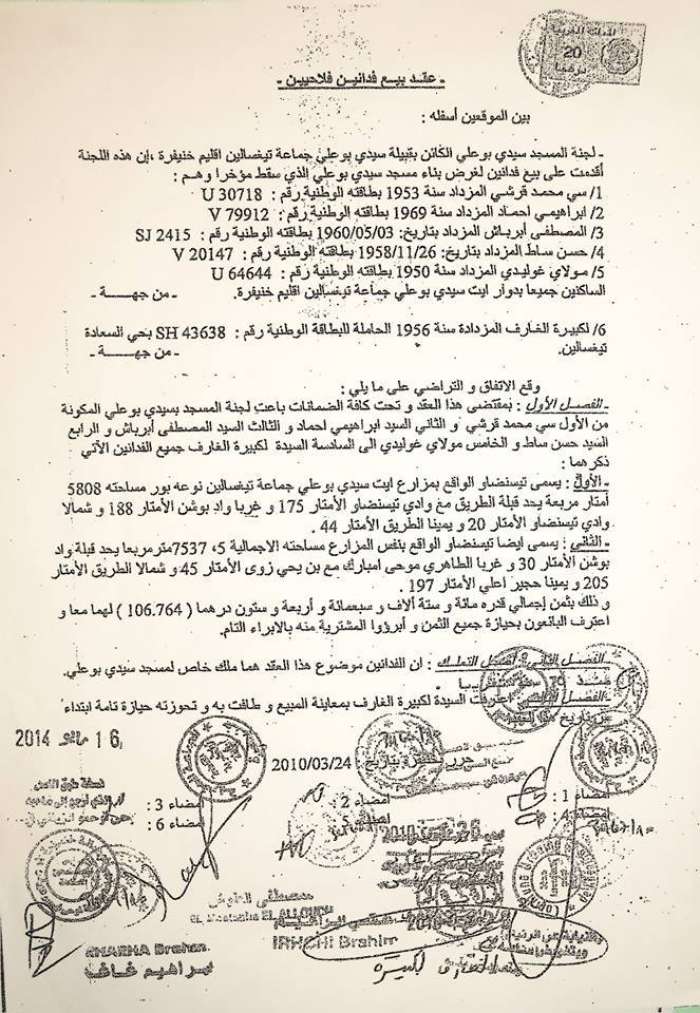 المملكة المغربية
20
- عقد بيع فدانين فلاحيين -
بين الموقعين أسفله :
- لجنة المسجد سيدي بوعلي الكائن بقبيلة سيدي بوعلي جماعة تيغسالين اقليم خنيفرة ،إن هذه اللجنة
أقدمت على بيع فدانين لغرض بناء مسجد سيدي بوعلي الذي سقط مؤخرا وهم :
1/ سي محمد قرشي المزداد سنة 1953 بطاقته الوطنية رقم : U 30718
2/ ابراهيمي احماد المزداد سنة 1969 بطاقته الوطنية رقم : V 79912
3/ المصطفى أبرباش المزداد بتاريخ: 1960/05/03 بطاقته الوطنية رقم : SJ 2415
4/ حسن ساط المزداد بتاريخ: 1958/11/26 بطاقته الوطنية رقم : V 20147
5/ مولاي غوليدي المزداد سنة 1950 بطاقته الوطنية رقم : U 64644
الساكنين جميعا بدوار ايت سيدي بوعلي جماعة تيغسالين اقليم خنيفرة. - من جهـــة -
6/ لكبيرة الغارف المزدادة سنة 1956 الحاملة للبطاقة الوطنية رقم : SH 43638 بحي السعادة
تيغسالين. - من جهـــة -
وقع الاتفاق و التراضي على ما يلي :
- الفصل الأول : بمقتضى هذا العقد و تحت كافة الضمانات باعت لجنة المسجد بسيدي بوعلي المكونة
من الأول سي محمد قرشي و الثاني السيد ابراهيمي احماد و الثالث السيد المصطفى أبرباش و الرابع
السيد حسن ساط و الخامس مولاي غوليدي الى السادسة السيدة لكبيرة الغارف جميع الفدانين الآتي
ذكرهما :
- الأول : يسمى تيسنضاو الواقع بمزارع ايت سيدي بوعلي جماعة تيغسالين نوعه بور مساحته 5808
أمتار مربعة يحد قبلة الطريق مع وادي تيسنضاو الأمتار 175 و غربا واد بوشن الأمتار 188 و شمالا
وادي تيسنضاو الأمتار 20 و يمينا الطريق الأمتار 44 .
- الثاني : يسمى ايضا تيسنضاو الواقع بنفس المزارع مساحته الاجمالية 5، 7537مترمربعا يحد قبلة واد
بوشن الأمتار 30 و غربا الطاهري موحى امبارك مع بن يحي زوى الأمتار 45 و شمالا الطريق الأمتار
205 و يمينا حجير اعلي الأمتار 197 .
و ذلك بثمن إجمالي قدره مائة و ستة ألاف و سبعمائة و أربعة و ستون درهما ( 106.764 ) لهما معا و
اعترف البائعون بحيازة جميع الثمن و أبرؤوا المشترية منه بالابراء التام.
الفصل الثاني : أصل التملك : ان الفدانين موضوع هذا العقد هما ملك خاص لمسجد سيدي بوعلي.
منذ 70 سنة تقريبا
الفصل الثالث : اعترفت السيدة لكبيرة الغارف بمعاينة المبيع و طافت به و تحوزته حيازة تامة ابتداء
من تاريخ هذا العقد
16 ماي 2014
حرر بخنيفرة بتاريخ : 2010/03/24
امضاء 1 :
امضاء 2 :
امضاء 3 :
امضاء 4 :
امضاء 5 :
امضاء 6 :
مصطفى العلوش
EL Mostapha EL ALLOUCH
IRHCHI Brahim
RHARHA Brahim
ابراهيم غاغا
لكبيرة